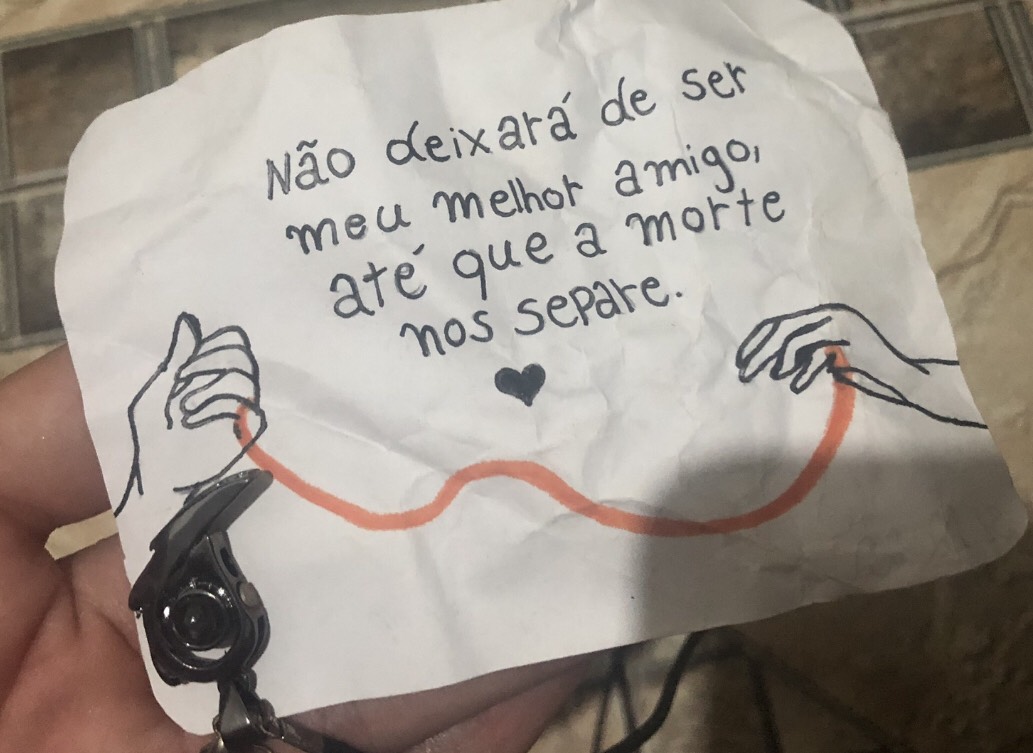 Não deixará de ser
meu melhor amigo,
até que a morte
nos separe.